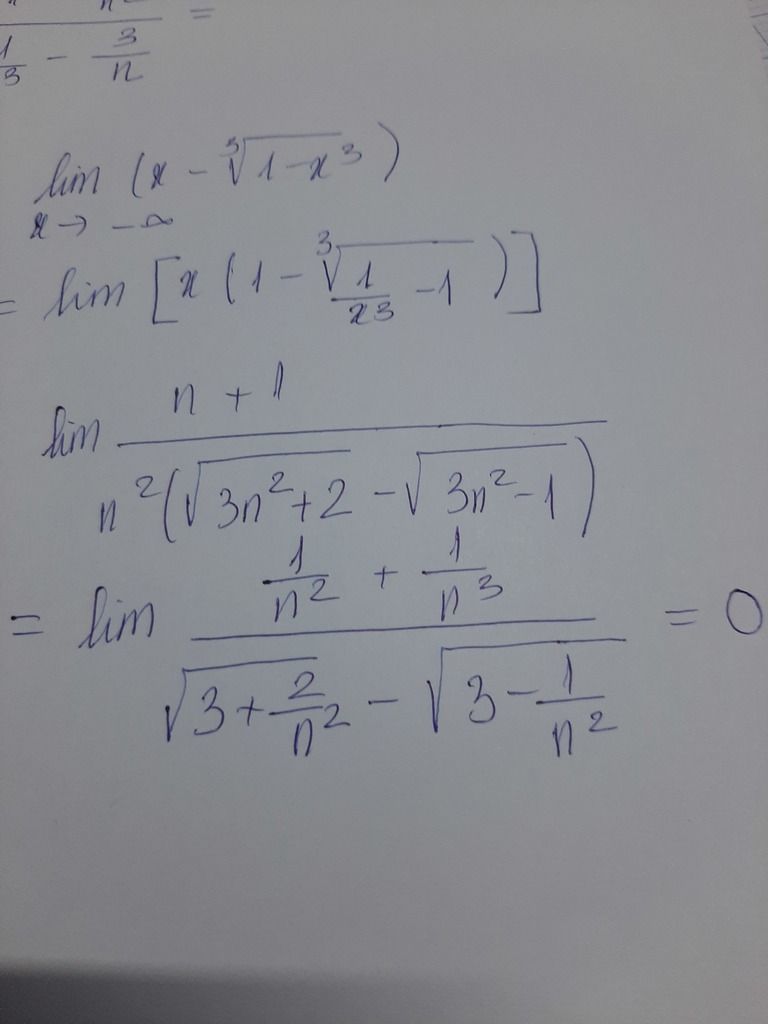 =
1/3 - 3/n
lim (x - ∛(1-x³))
x → -∞
= lim [x (1 - ∛(1/x³ - 1))]
lim (n + 1)/(n²(√(3n²+2) - √(3n²-1)))
= lim (1/n² + 1/n³)/(√(3+2/n²) - √(3-1/n²)) = 0